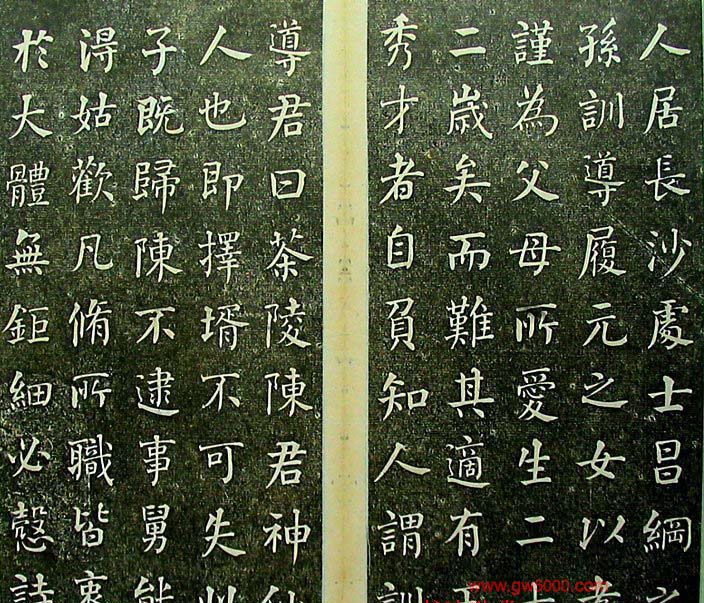 人居長沙處士昌綱之
孫訓導履元之女以
謹為父母所愛生二十
二歲矣而難其適有
秀才者自負知人謂訓
導君曰茶陵陳君神仙
人也即擇壻不可失此
子既歸陳不逮事舅能
淂姑歡凡脩所職皆衷
於大體無鉅細必慤詩
www.gw5000.com